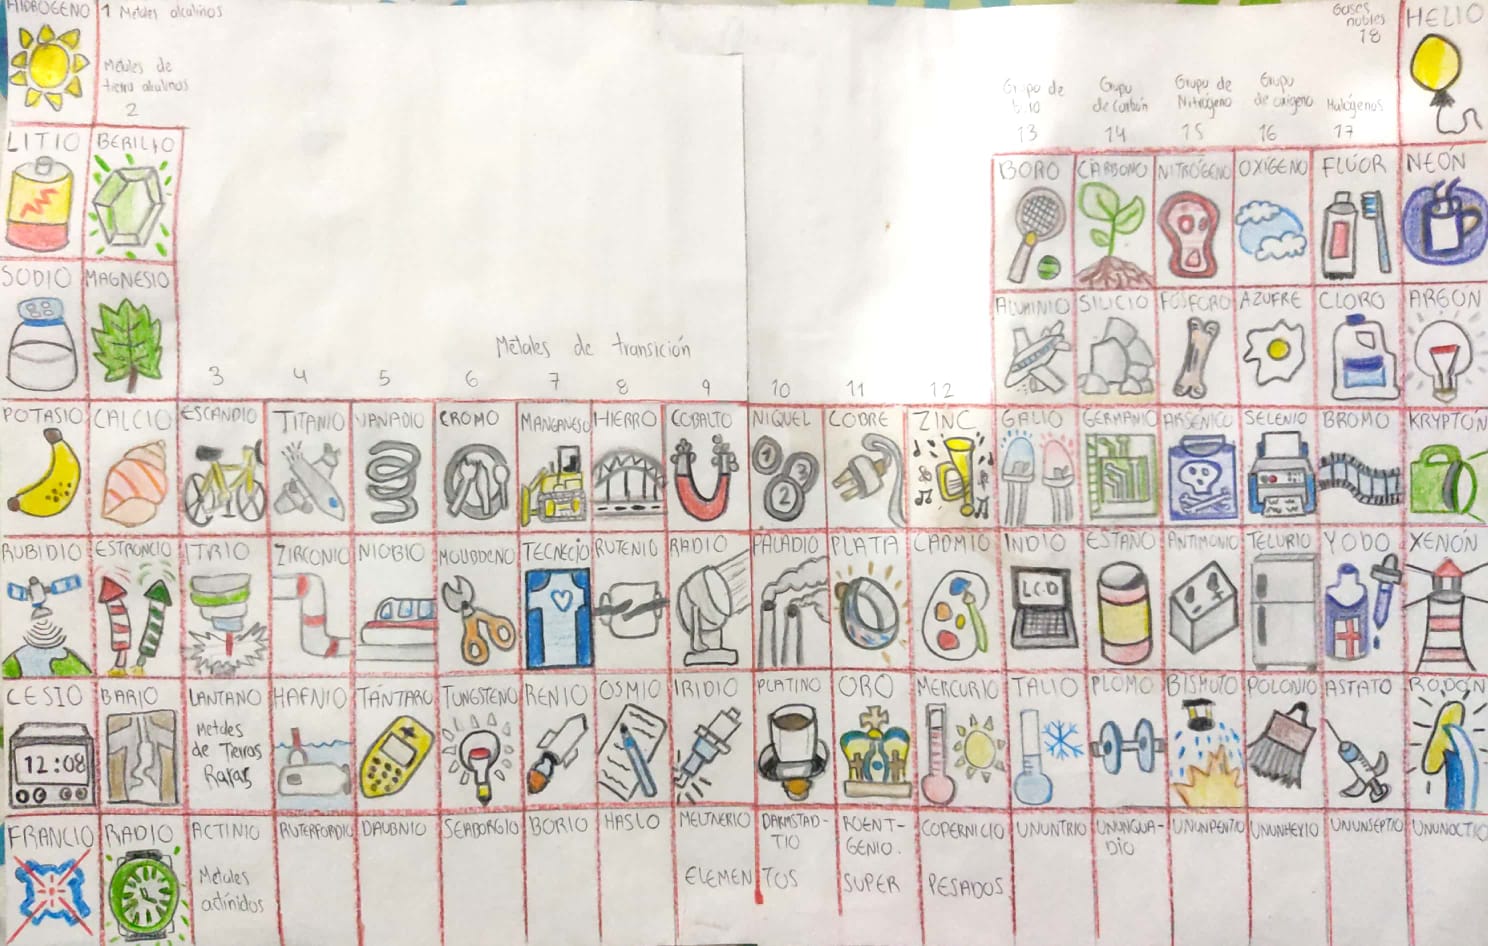 HIDRÓGENO
1 Metales alcalinos
Gases
nobles
18
HELIO
Metales de
tierra alcalinos
2
Grupo de
13
Grupo
de Carbón
14
Grupo de
Nitrógeno
15
Grupo
de oxigeno
16
Halógenos
17
LITIO
BERILIO
BORO
CARBONO
NITRÓGENO
OXÍGENO
FLÚOR
NEÓN
SODIO
MAGNESIO
ALUMINIO
SILICIO
FÓSFORO
AZUFRE
CLORO
ARGÓN
Metales de transición
3 4 5 6 7 8 9 10 11 12
POTASIO
CALCIO
ESCANDIO
TITANIO
VANADIO
CROMO
MANGANESO
HIERRO
COBALTO
NIQUEL
1
3
2
COBRE
ZINC
GALIO
GERMANIO
ARSÉNICO
SELENIO
BROMO
KRYPTÓN
RUBIDIO
ESTRONCIO
ITRIO
ZIRCONIO
NIOBIO
MOLIBDENO
TECNECIO
RUTENIO
RADIO
PALADIO
PLATA
CADMIO
INDIO
LCD
ESTAÑO
ANTIMONIO
TELURIO
YODO
XENÓN
CESIO
12:08
BARIO
LANTANO
Metales
de Tierras
Raras
HAFNIO
TÁNTARO
TUNGSTENO
RENIO
OSMIO
IRIDIO
PLATINO
ORO
MERCURIO
TALIO
PLOMO
BISMUTO
POLONIO
ASTATO
RADÓN
FRANCIO
RADIO
ACTINIO
Metales
actínidos
RUTERFORDIO
DAUBNIO
SEABORGIO
BORIO
HASLO
MEITNERIO
DARMSTAD-
TIO
ROENT-
GENIO.
COPERNICIO
UNUNTRIO
UNUNQUA-
DIO
UNUNPENTIO
UNUNHEXIO
UNUNSEPTIO
UNUNOCTIO
ELEMENTOS SUPER PESADOS